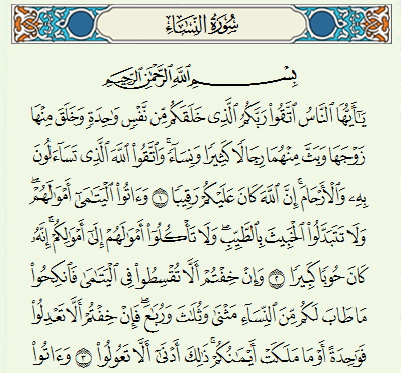 سُورَةُ النِّسَاءِ
بِسْمِ ٱللَّهِ ٱلرَّحْمَٰنِ ٱلرَّحِيمِ
يَٰٓأَيُّهَا ٱلنَّاسُ ٱتَّقُوا۟ رَبَّكُمُ ٱلَّذِى خَلَقَكُم مِّن نَّفْسٍ وَٰحِدَةٍ وَخَلَقَ مِنْهَا
زَوْجَهَا وَبَثَّ مِنْهُمَا رِجَالًا كَثِيرًا وَنِسَآءً ۚ وَٱتَّقُوا۟ ٱللَّهَ ٱلَّذِى تَسَآءَلُونَ
بِهِۦ وَٱلْأَرْحَامَ ۚ إِنَّ ٱللَّهَ كَانَ عَلَيْكُمْ رَقِيبًا ١ وَءَاتُوا۟ ٱلْيَتَٰمَىٰٓ أَمْوَٰلَهُمْ ۖ
وَلَا تَتَبَدَّلُوا۟ ٱلْخَبِيثَ بِٱلطَّيِّبِ ۖ وَلَا تَأْكُلُوٓا۟ أَمْوَٰلَهُمْ إِلَىٰٓ أَمْوَٰلِكُمْ ۚ إِنَّهُۥ
كَانَ حُوبًا كَبِيرًا ٢ وَإِنْ خِفْتُمْ أَلَّا تُقْسِطُوا۟ فِى ٱلْيَتَٰمَىٰ فَٱنكِحُوا۟
مَا طَابَ لَكُم مِّنَ ٱلنِّسَآءِ مَثْنَىٰ وَثُلَٰثَ وَرُبَٰعَ ۖ فَإِنْ خِفْتُمْ أَلَّا تَعْدِلُوا۟
فَوَٰحِدَةً أَوْ مَا مَلَكَتْ أَيْمَٰنُكُمْ ۚ ذَٰلِكَ أَدْنَىٰٓ أَلَّا تَعُولُوا۟ ٣ وَءَاتُوا۟